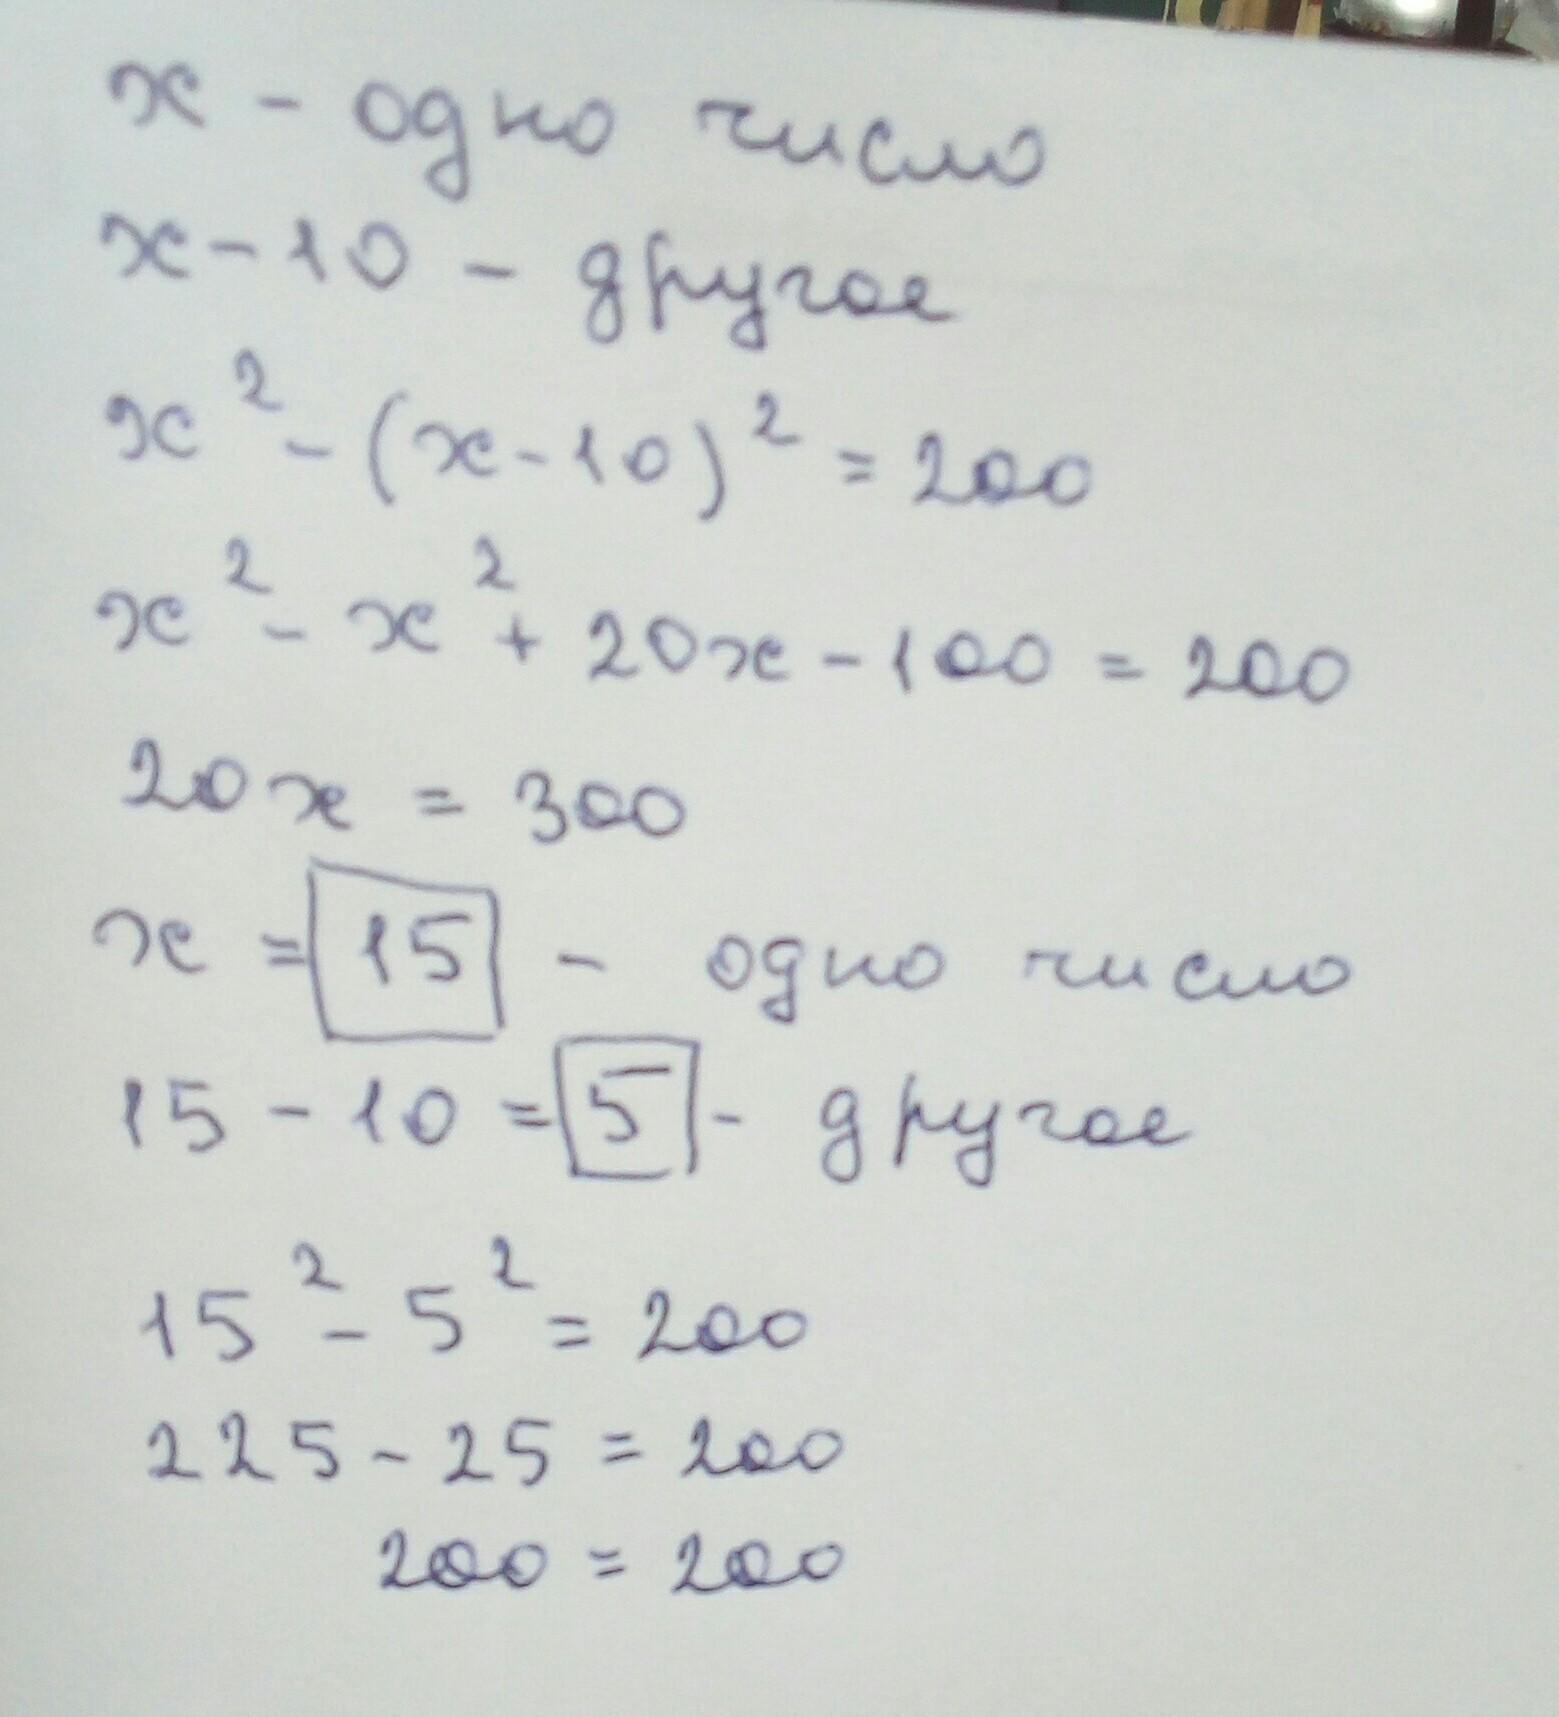 x - одно число
x - 10 - другое
x² - (x - 10)² = 200
x² - x² + 20x - 100 = 200
20x = 300
x = 15 - одно число
15 - 10 = 5 - другое
15² - 5² = 200
225 - 25 = 200
200 = 200